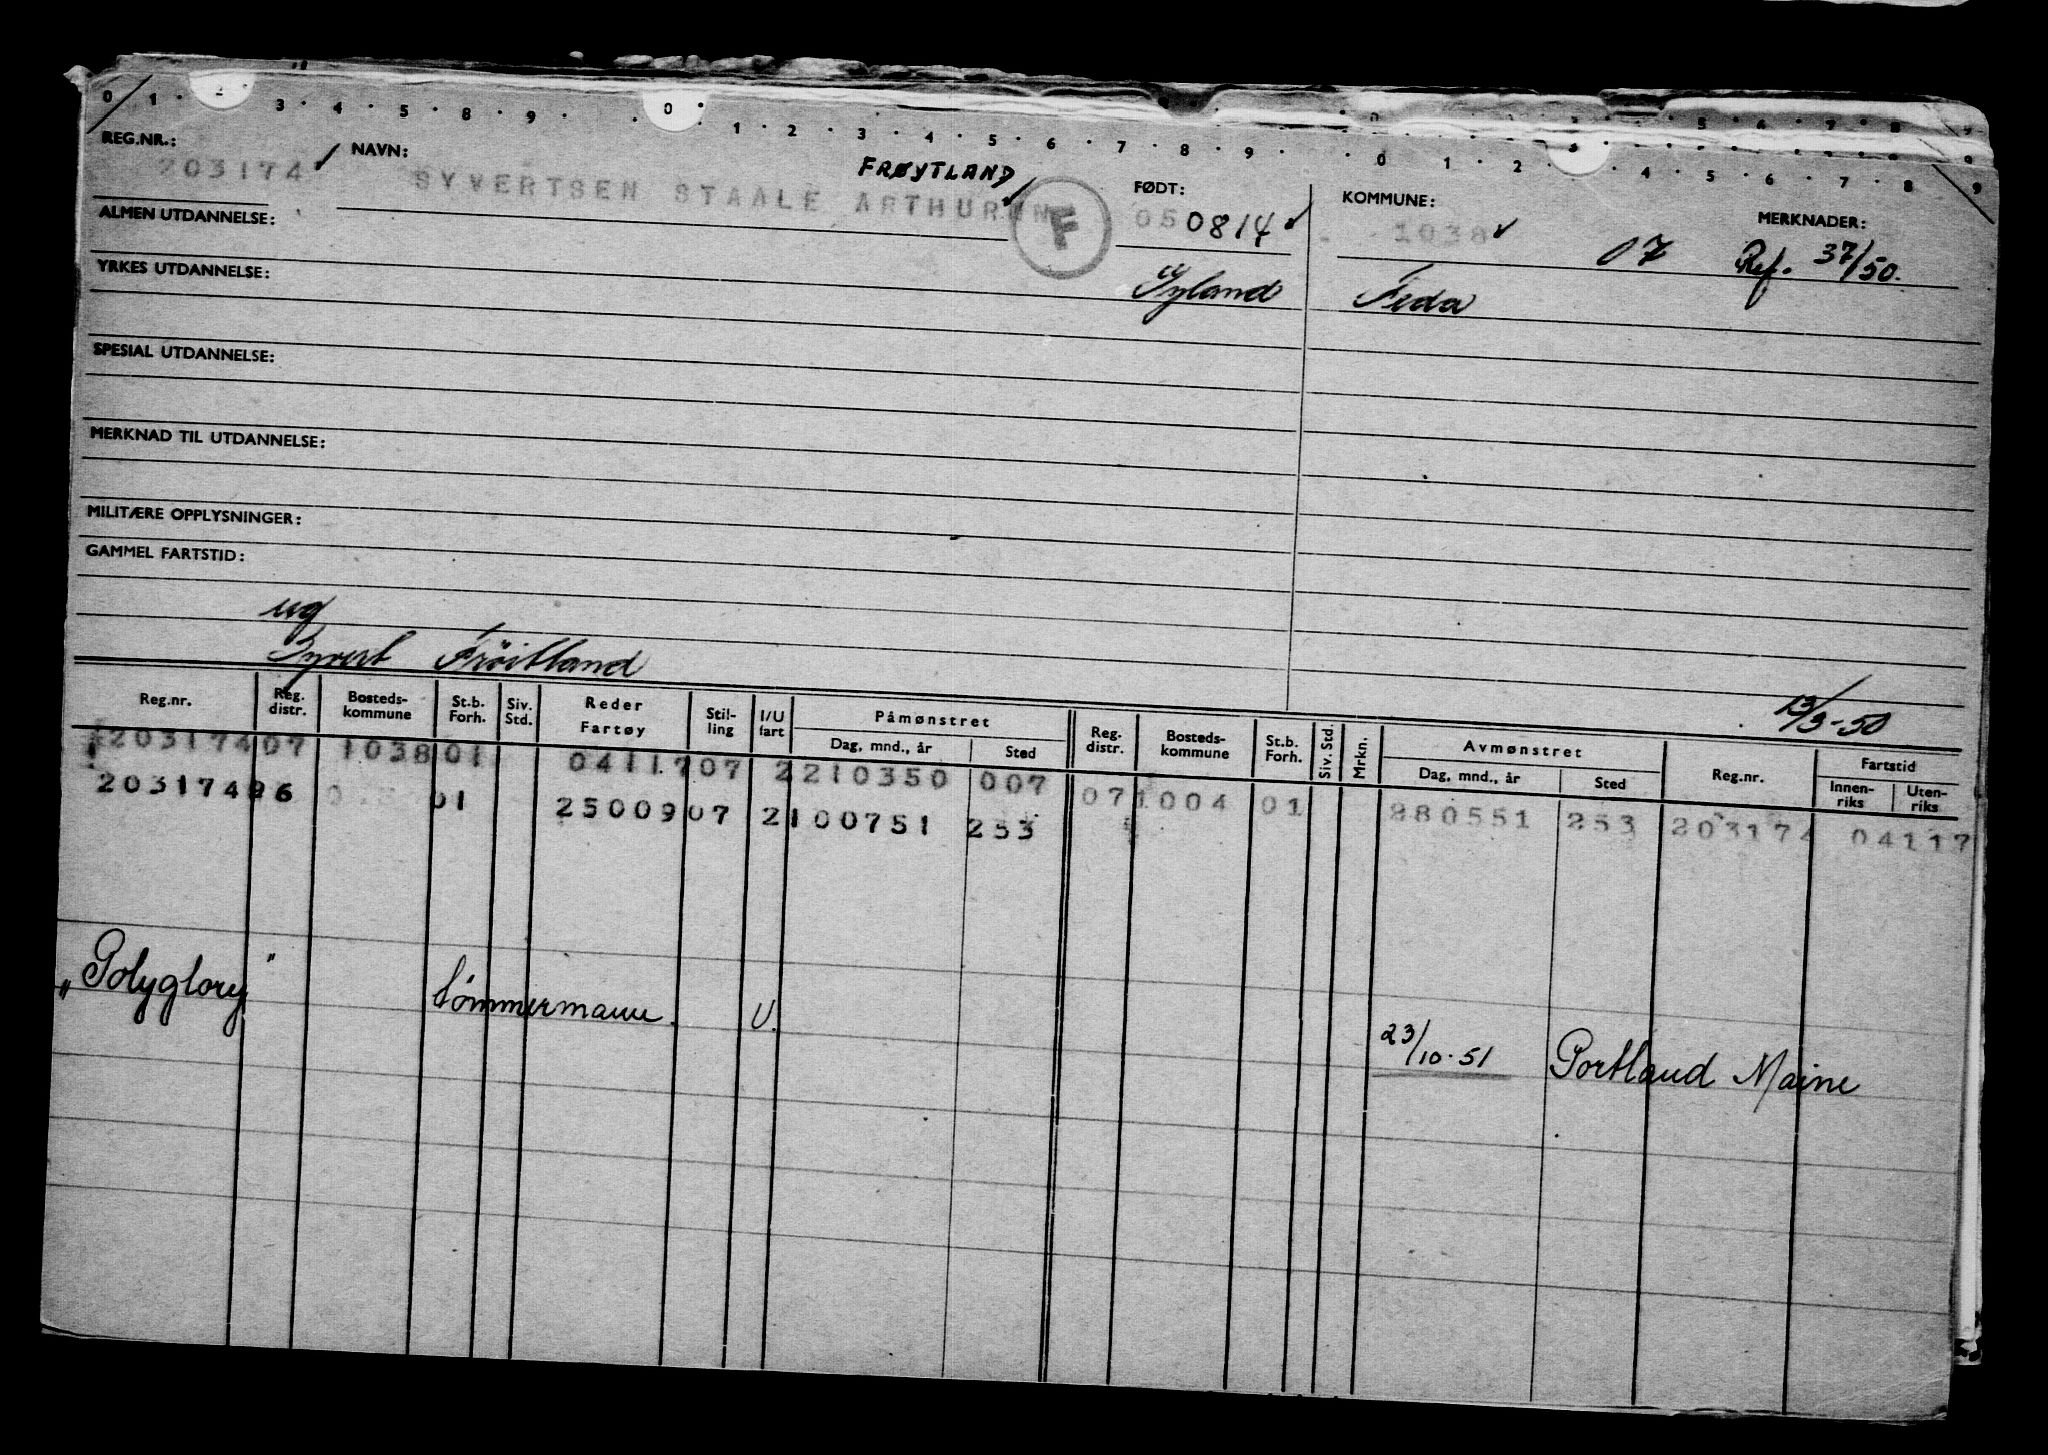 0 1 · 2 3 · 4 · 5 · 8 · 9 · · 0 · 1 · 2 · 3 · 4 · 5 · 6 · 7 · 8 · 9 · · 0 1 · 2 · 3 · 4 · 5 · 6 · 7 · 8 9
REG.NR.: NAVN: FRØYTLAND FØDT: KOMMUNE: MERKNADER:
203174 SYVERTSEN STAALE ARTHUR F 050814 1038 07 Ref. 37/50.
ALMEN UTDANNELSE:
YRKES UTDANNELSE: Gyland Feda
SPESIAL UTDANNELSE:
MERKNAD TIL UTDANNELSE:
MILITÆRE OPPLYSNINGER:
GAMMEL FARTSTID:
ug
Syvert Fröitland 13/3-50
Reg.nr. Reg. distr. Bosteds-kommune St.b. Forh. Siv. Std. Reder Fartøy Stil-ling I/U fart Påmønstret Dag, mnd., år Sted Reg. distr. Bosteds-kommune St.b. Forh. Siv. Std. Mrkn. Avmønstret Dag, mnd., år Sted Reg.nr. Fartstid Innen-riks Uten-riks
203174 07 1038 01 04117 07 2 210350 007 07 1004 01 280551 253 203174 04117
203174 96 01 25009 07 2 100751 253
„Polyglory" tömmermann. U. 23/10.51 Portland Maine